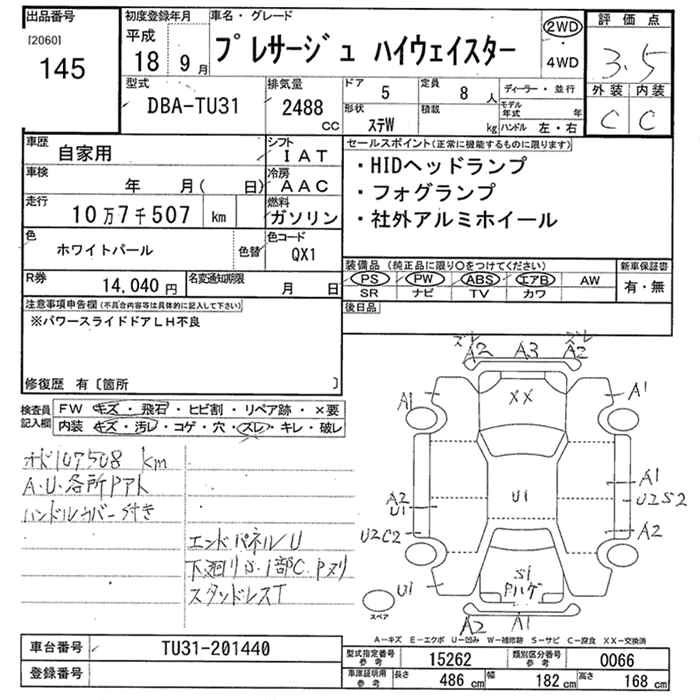 出品番号
[2060]
145
初度登録年月
平成
18年9月
車名・グレード
プレサージュ ハイウェイスター
2WD
・
4WD
評価点
3.5
外装 内装
C C
型式
DBA-TU31
排気量
2488
CC
ドア
5
定員
8人
形状
ステW
積載
kg
ディーラー・並行
モデル年式 年
ハンドル 左・右
車歴
自家用
シフト
IAT
車検
年 月( 日)
冷房
AAC
走行
10万7千507 km
燃料
ガソリン
色
ホワイトパール
色替
色コード
QX1
R券
14,040円
名変通知期限
月 日
セールスポイント(正常に機能するものに限ります)
・HIDヘッドランプ
・フォグランプ
・社外アルミホイール
装備品 (純正品に限り○をつけてください)
PS PW ABS エアB AW
SR ナビ TV カワ
新車保証書
有・無
後日品
注意事項申告欄(不具合内容等は具体的に記入して下さい)
※パワースライドドアLH不良
修復歴 有〔箇所 〕
検査員記入欄
FW キズ・飛石・ヒビ割・リペア跡・×要
内装 キズ・汚レ・コゲ・穴・スレ・キレ・破レ
オド107508 km
A・U・各所Pアト
ハンドルカバー付き
エンドパネルU
下廻りS.1部C Pヌリ
スタッドレスT
ズレ ズレ
A2 A3 A2
XX
A1 A1
A2
U1
U1
A1
U2S2
U2C2
A2
U1
S1
Pハゲ
スペア
A2 A1
A-キズ E-エクボ U-凹み W-補修跡 S-サビ C-腐食 XX-交換済
車台番号
TU31-201440
登録番号
型式指定番号
参考
15262
類別区分番号
参考
0066
車庫証明用
参考
長さ
486 cm
幅
182 cm
高さ
168 cm